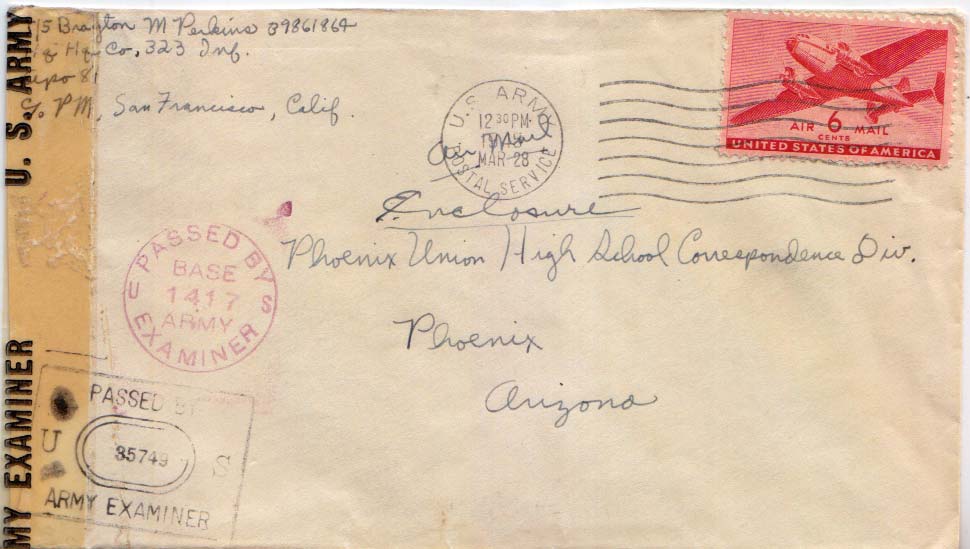 Brayton M Perkins 39861864
Hq Co, 323 Inf.
81
PM, San Francisco, Calif.
U.S. ARMY
12 30 PM
MAR 28
POSTAL SERVICE
Air Mail
AIR 6 MAIL
CENTS
UNITED STATES OF AMERICA
Enclosure
Phoenix Union High School Correspondence Div.
Phoenix
Arizona
PASSED BY
BASE
1417
ARMY
EXAMINER
U S
PASSED BY
U 35749 S
ARMY EXAMINER
MY EXAMINER U.S. ARMY